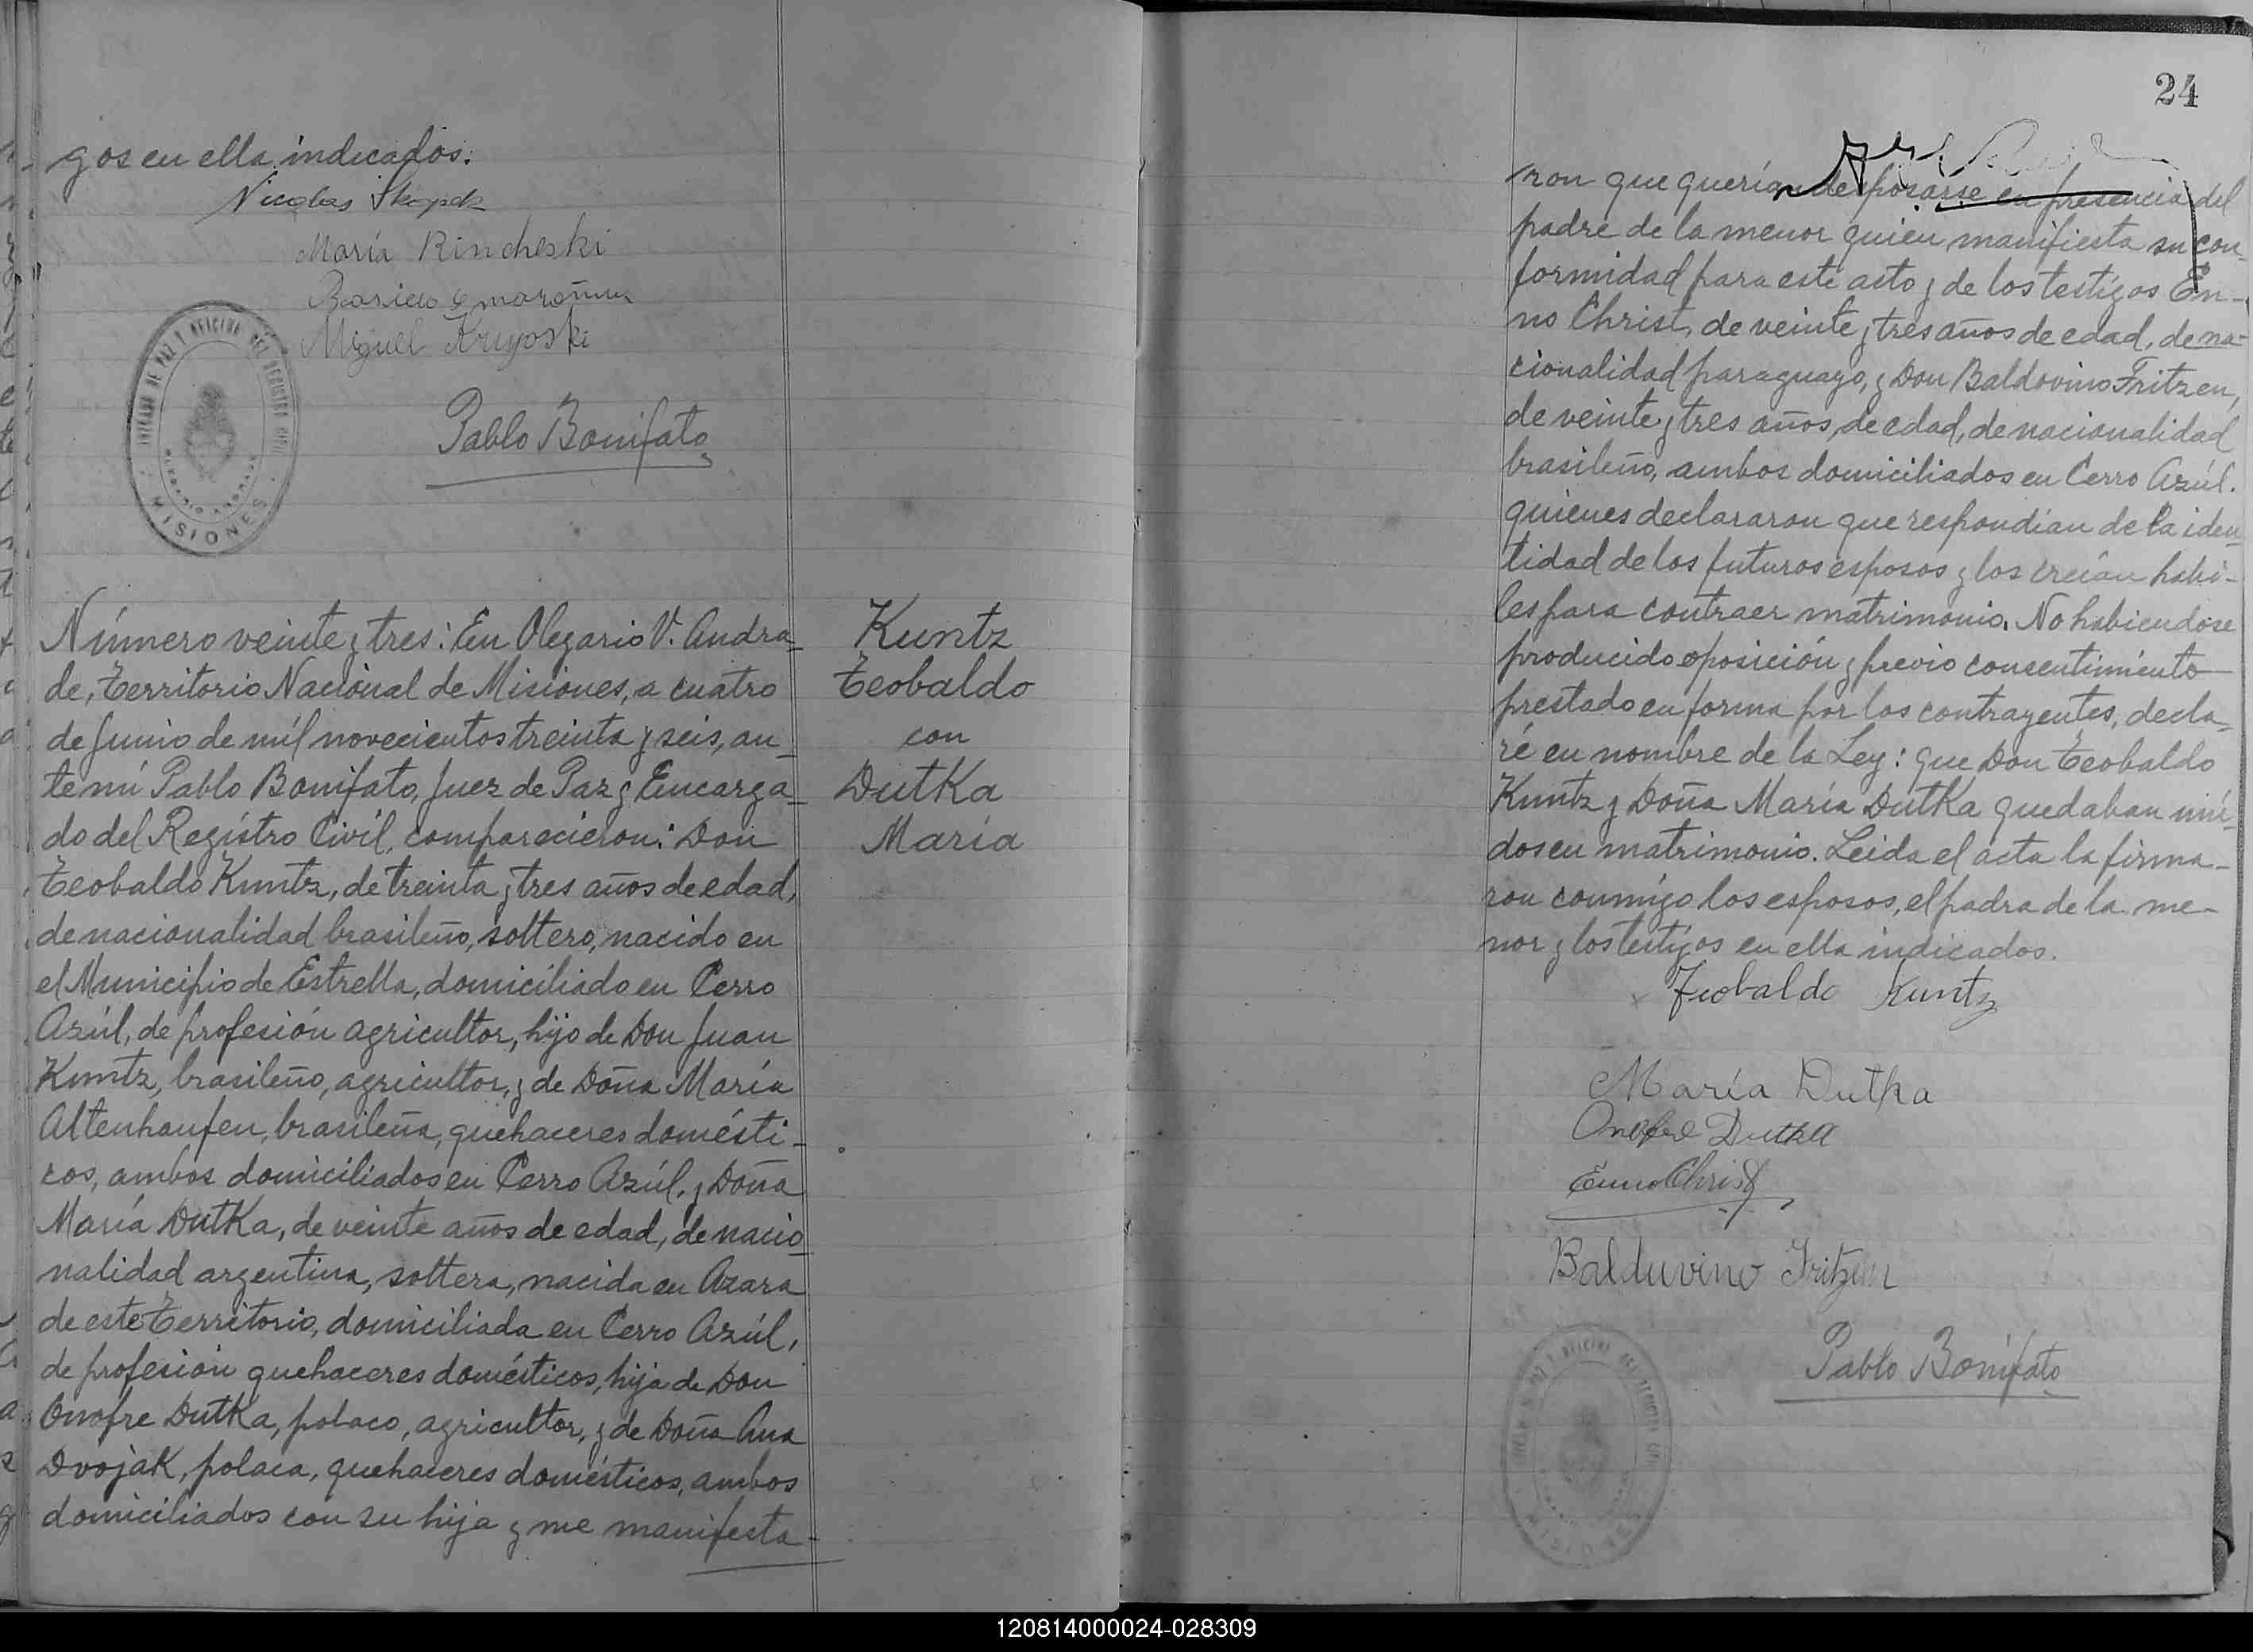 gos en ella indicados.
Nicolas Skopek
María Rincheski
Miguel Kruyoski
JUZGADO DE PAZ Y OFICINA DEL REGISTRO CIVIL
MISIONES
Pablo Bonifato
Número veinte y tres: En Olegario V. Andra-
de, Territorio Nacional de Misiones, a cuatro
de Junio de mil novecientos treinta y seis, an-
te mí Pablo Bonifato, Juez de Paz y Encarga-
do del Registro Civil, comparecieron: Don
Teobaldo Kuntz, de treinta y tres años de edad,
de nacionalidad brasileño, soltero, nacido en
el Municipio de Estrella, domiciliado en Cerro
Azúl, de profesión agricultor, hijo de Don Juan
Kuntz, brasileño, agricultor, y de Doña María
Altenhaufen, brasileña, quehaceres domésti-
cos, ambos domiciliados en Cerro Azúl. y Doña
María Dutka, de veinte años de edad, de nacio-
nalidad argentina, soltera, nacida en Azara
de este Territorio, domiciliada en Cerro Azúl,
de profesión quehaceres domésticos, hija de Don
Onofre Dutka, polaco, agricultor, y de Doña Ana
Dvojak, polaca, quehaceres domésticos, ambos
domiciliados con su hija y me manifesta-
Kuntz
Teobaldo
con
Dutka
María
24
ron que querían desposarse en presencia del
padre de la menor quien manifiesta su con-
formidad para este acto y de los testigos En-
no Christ, de veinte y tres años de edad, de na-
cionalidad paraguayo, y Don Baldovino Fritzen,
de veinte y tres años de edad, de nacionalidad
brasileño, ambos domiciliados en Cerro Azúl.
quienes declararon que respondían de la iden-
tidad de los futuros esposos y los creían habi-
les para contraer matrimonio. No habiendose
producido oposición y previo concentimiento
prestado en forma por los contrayentes, decla-
ré en nombre de la Ley: que Don Teobaldo
Kuntz y Doña María Dutka quedaban uni-
dos en matrimonio. Leida el acta la firma-
ron conmigo los esposos, el padra de la me-
nor y los testigos en ella indicados.
Teobaldo Kuntz
María Dutka
Onofre Dutka
Enno Christ
Balduvino Fritzen
Pablo Bonifato
120814000024-028309